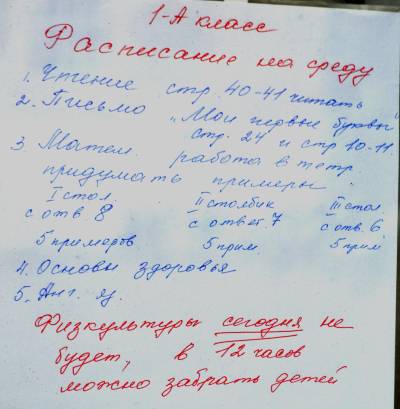 1-А класс
Расписание на среду
1. Чтение стр. 40-41 читать
2. Письмо „Мои первые буквы"
стр. 24 и стр 10-11.
3. Матем. работа в тетр.
придумать примеры
I стол. II столбик III стол.
с отв. 8 с ответ 7 с отв. 6
5 примеров 5 прим 5 прим.
4. Основы здоровья
5. Анг. яз.
Физкультуры сегодня не
будет, в 12 часов
можно забрать детей